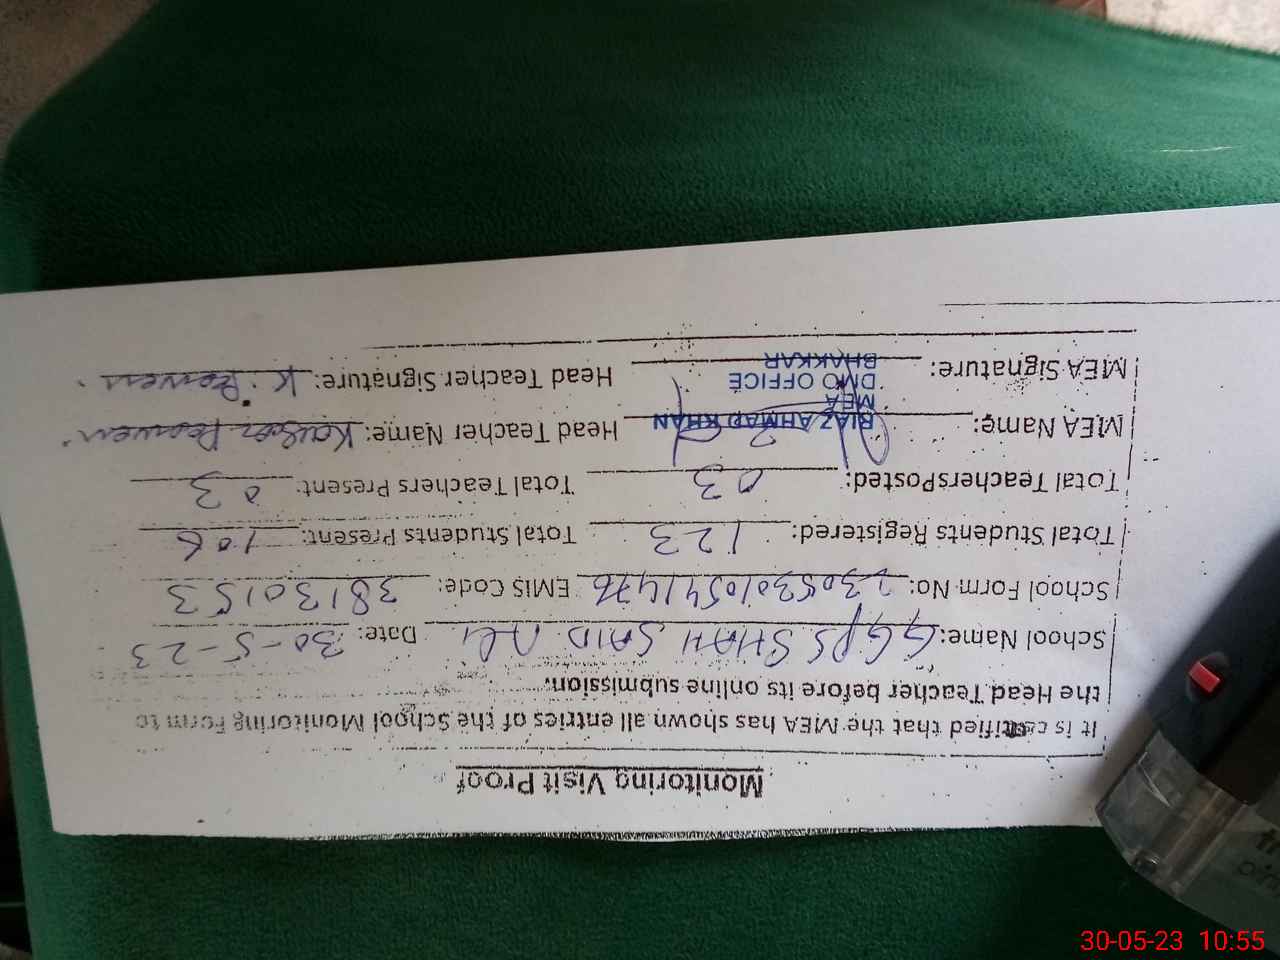 Monitoring Visit Proof
It is certified that the MEA has shown all entries of the School Monitoring Form to
the Head Teacher before its online submission.
School Name: GGPS SHAH SAID ALi Date: 30-5-23
School Form No: EMIS Code: 38130153
Total Students Registered: 123 Total Students Present: 106
Total TeachersPosted: 03 Total Teachers Present: 03
MEA Name: RIAZ AHMAD KHAN Head Teacher Name: Kausar Parveen
MEA
DMO OFFICE
MEA Signature: BHAKKAR Head Teacher Signature: K. Parveen
30-05-23 10:55